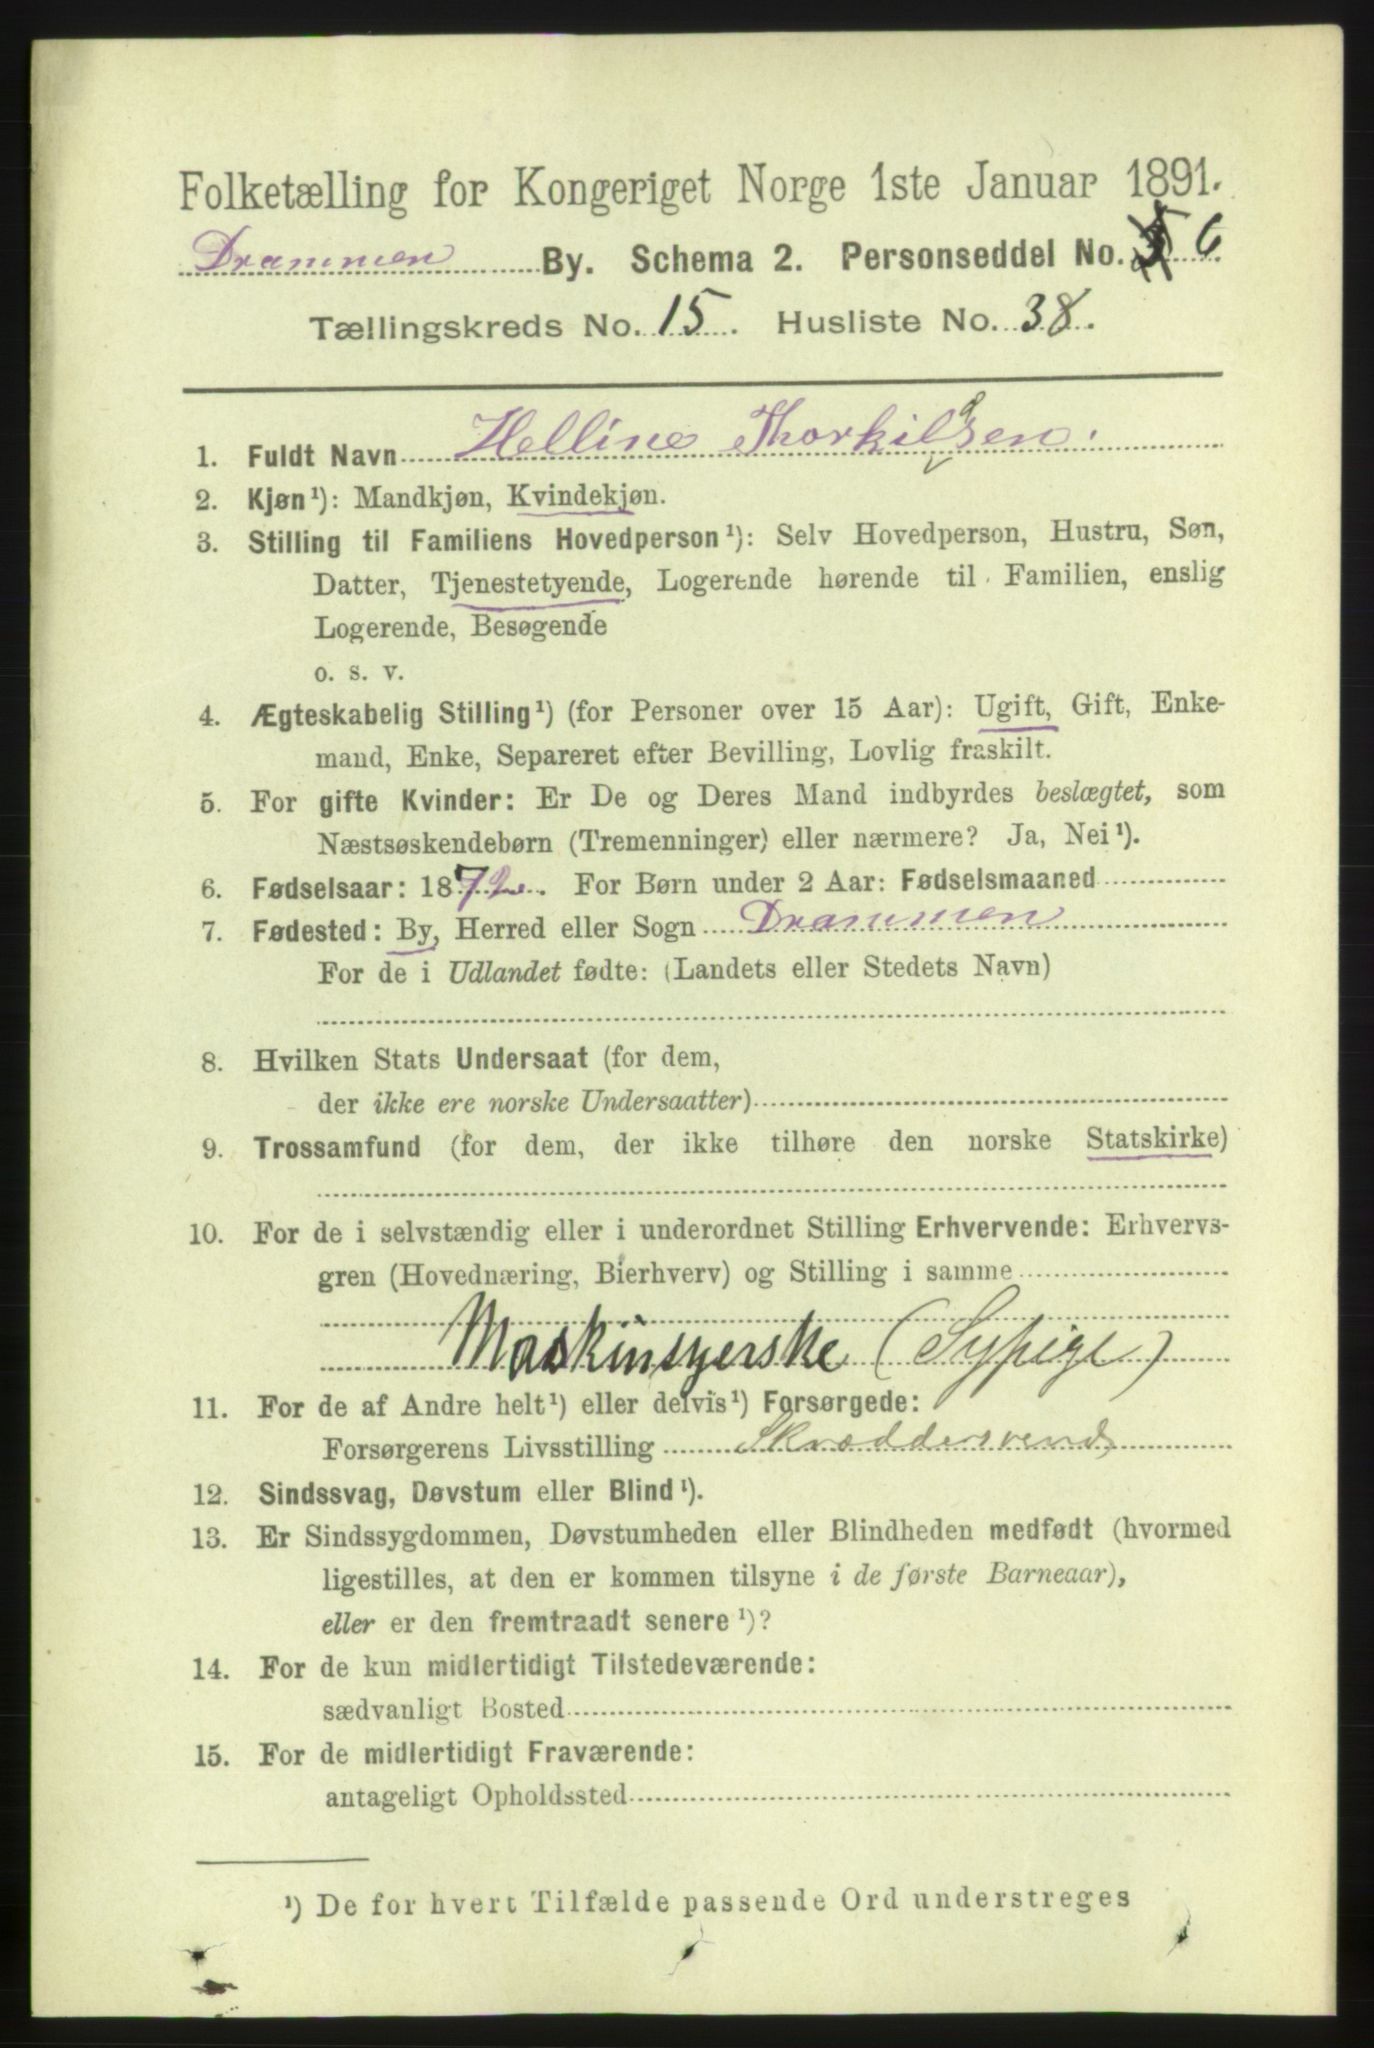 Folketælling for Kongeriget Norge 1ste Januar 1891.
Drammen By. Schema 2. Personseddel No. 6
Tællingskreds No. 15. Husliste No. 38.
1. Fuldt Navn Helline Thorkilsen.
2. Kjøn¹): Mandkjøn, Kvindekjøn.
3. Stilling til Familiens Hovedperson¹): Selv Hovedperson, Hustru, Søn,
Datter, Tjenestetyende, Logerende hørende til Familien, enslig
Logerende, Besøgende
o. s. v.
4. Ægteskabelig Stilling¹) (for Personer over 15 Aar): Ugift, Gift, Enke-
mand, Enke, Separeret efter Bevilling, Lovlig fraskilt.
5. For gifte Kvinder: Er De og Deres Mand indbyrdes beslægtet, som
Næstsøskendebørn (Tremenninger) eller nærmere? Ja, Nei¹).
6. Fødselsaar: 1872. For Børn under 2 Aar: Fødselsmaaned
7. Fødested: By, Herred eller Sogn Drammen
For de i Udlandet fødte: (Landets eller Stedets Navn)
8. Hvilken Stats Undersaat (for dem,
der ikke ere norske Undersaatter)
9. Trossamfund (for dem, der ikke tilhøre den norske Statskirke)
10. For de i selvstændig eller i underordnet Stilling Erhvervende: Erhvervs-
gren (Hovednæring, Bierhverv) og Stilling i samme
Maskinsyerske (Sypige)
11. For de af Andre helt¹) eller delvis¹) Forsørgede:
Forsørgerens Livsstilling Skræddersvend
12. Sindssvag, Døvstum eller Blind¹).
13. Er Sindssygdommen, Døvstumheden eller Blindheden medfødt (hvormed
ligestilles, at den er kommen tilsyne i de første Barneaar),
eller er den fremtraadt senere¹)?
14. For de kun midlertidigt Tilstedeværende:
sædvanligt Bosted
15. For de midlertidigt Fraværende:
antageligt Opholdssted
¹) De for hvert Tilfælde passende Ord understreges